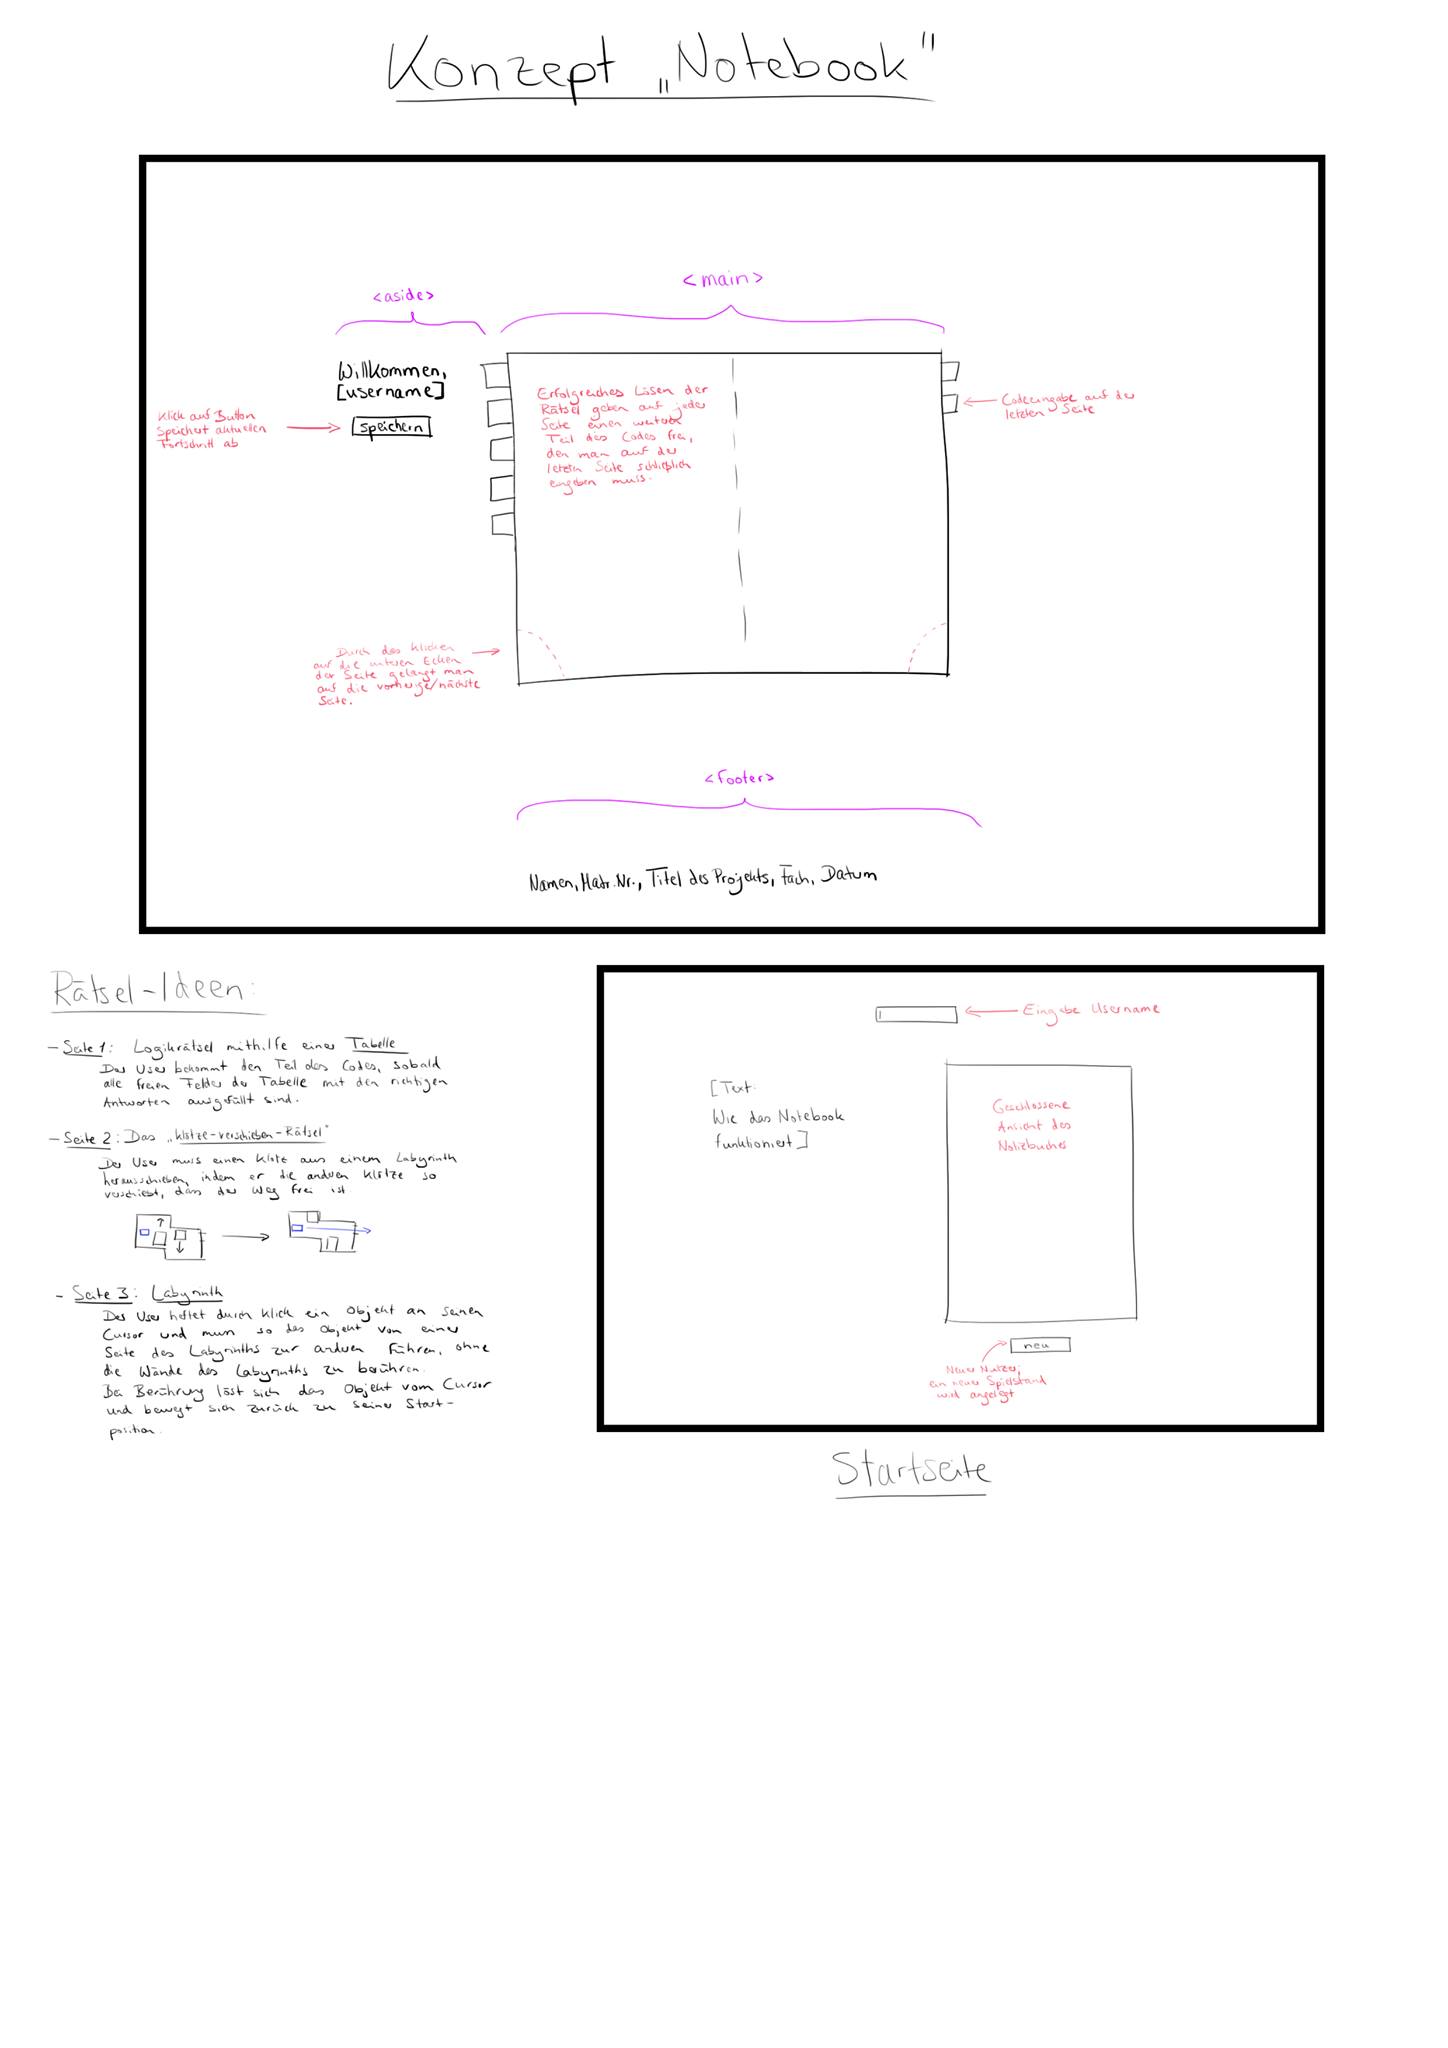 Konzept „Notebook"
<aside>
<main>
Willkommen,
[username]
speichern
Klick auf Button
Speichert aktuellen
Fortschritt ab
Erfolgreiches Lösen der
Rätsel geben auf jeder
Seite einen weiteren
Teil des Codes frei,
den man auf der
letzten Seite schließlich
eingeben muss.
Codeeingabe auf der
letzten Seite
Durch das Klicken
auf die unteren Ecken
der Seite gelangt man
auf die vorherige/nächste
Seite.
<footer>
Namen, Matr.Nr., Titel des Projekts, Fach, Datum
Rätsel-Ideen:
- Seite 1: Logikrätsel mithilfe einer Tabelle
Der User bekommt den Teil des Codes, sobald
alle freien Felder der Tabelle mit den richtigen
Antworten ausgefüllt sind.
- Seite 2: Das „Klötze-verschieben-Rätsel"
Der User muss einen Klotz aus einem Labyrinth
herausschieben, indem er die anderen Klötze so
verschiebt, dass der Weg frei ist
- Seite 3: Labyrinth
Der User heftet durch Klick ein Objekt an seinen
Cursor und muss so das Objekt von einer
Seite des Labyrinths zur anderen führen, ohne
die Wände des Labyrinths zu berühren.
Bei Berührung löst sich das Objekt vom Cursor
und bewegt sich zurück zu seiner Start-
position.
Eingabe Username
[Text:
Wie das Notebook
funktioniert]
Geschlossene
Ansicht des
Notizbuches
neu
Neuer Nutzer,
ein neuer Spielstand
wird angelegt
Startseite